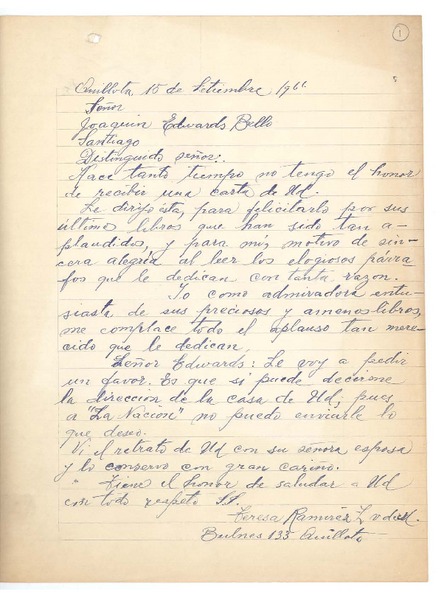 1
Quillota 15 de Setiembre 1961
Señor
Joaquin Edwards Bello
Santiago
Distinguido señor:.
Hace tanto tiempo no tengo el honor
de recibir una carta de Ud.
Le dirijo ésta, para felicitarlo por sus
últimos libros que han sido tan a-
plaudidos, y para mí, motivo de sin-
cera alegria al leer los elogiosos párra-
fos que le dedican con tanta razon.
Yo como admiradora entu-
siasta de sus preciosos y amenos libros,
me complace todo el aplauso tan mere-
cido que le dedican.
Señor Edwards: Le voy a pedir
un favor. Es que si puede decirme
la direccion de la casa de Ud, pues
a "La Nacion" no puedo enviarle lo
que deseo.
Vi el retrato de Ud con su señora esposa
y lo conservo con gran cariño.
" Tiene el honor de saludar a Ud
con todo respeto S.S.
Teresa Ramirez Z v de M.
Bulnes 135 Quillota